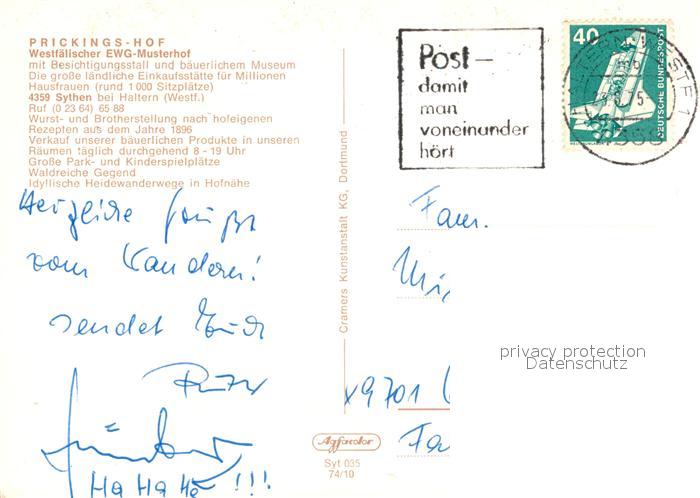 PRICKINGS-HOF
Westfälischer EWG-Musterhof
mit Besichtigungsstall und bäuerlichem Museum
Die große ländliche Einkaufsstätte für Millionen
Hausfrauen (rund 1000 Sitzplätze)
4359 Sythen bei Haltern (Westf.)
Ruf (0 23 64) 65 88
Wurst- und Brotherstellung nach hofeigenen
Rezepten aus dem Jahre 1896
Verkauf unserer bäuerlichen Produkte in unseren
Räumen täglich durchgehend 8 - 19 Uhr
Große Park- und Kinderspielplätze
Waldreiche Gegend
Idyllische Heidewanderwege in Hofnähe
Herzliche Grüße
vom Wandern!
sendet Euch
Günter
Ha Ha Ha !!!
Cramers Kunstanstalt KG, Dortmund
Agfacolor
Syt 035
74/10
Post –
damit
man
voneinander
hört
40
DEUTSCHE BUNDESPOST
Fam.
privacy protection
Datenschutz